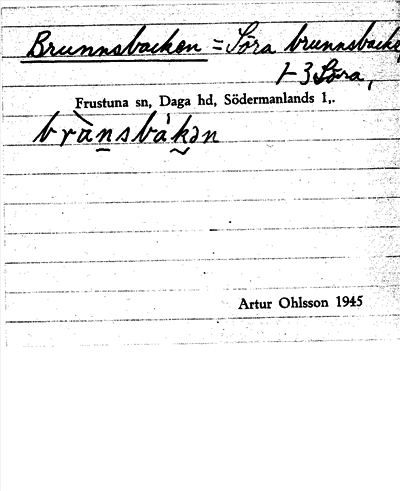 Brunnsbacken = Söra brunnsbacke
1-3 Söra,
Frustuna sn, Daga hd, Södermanlands l,.
brànsbákən
Artur Ohlsson 1945